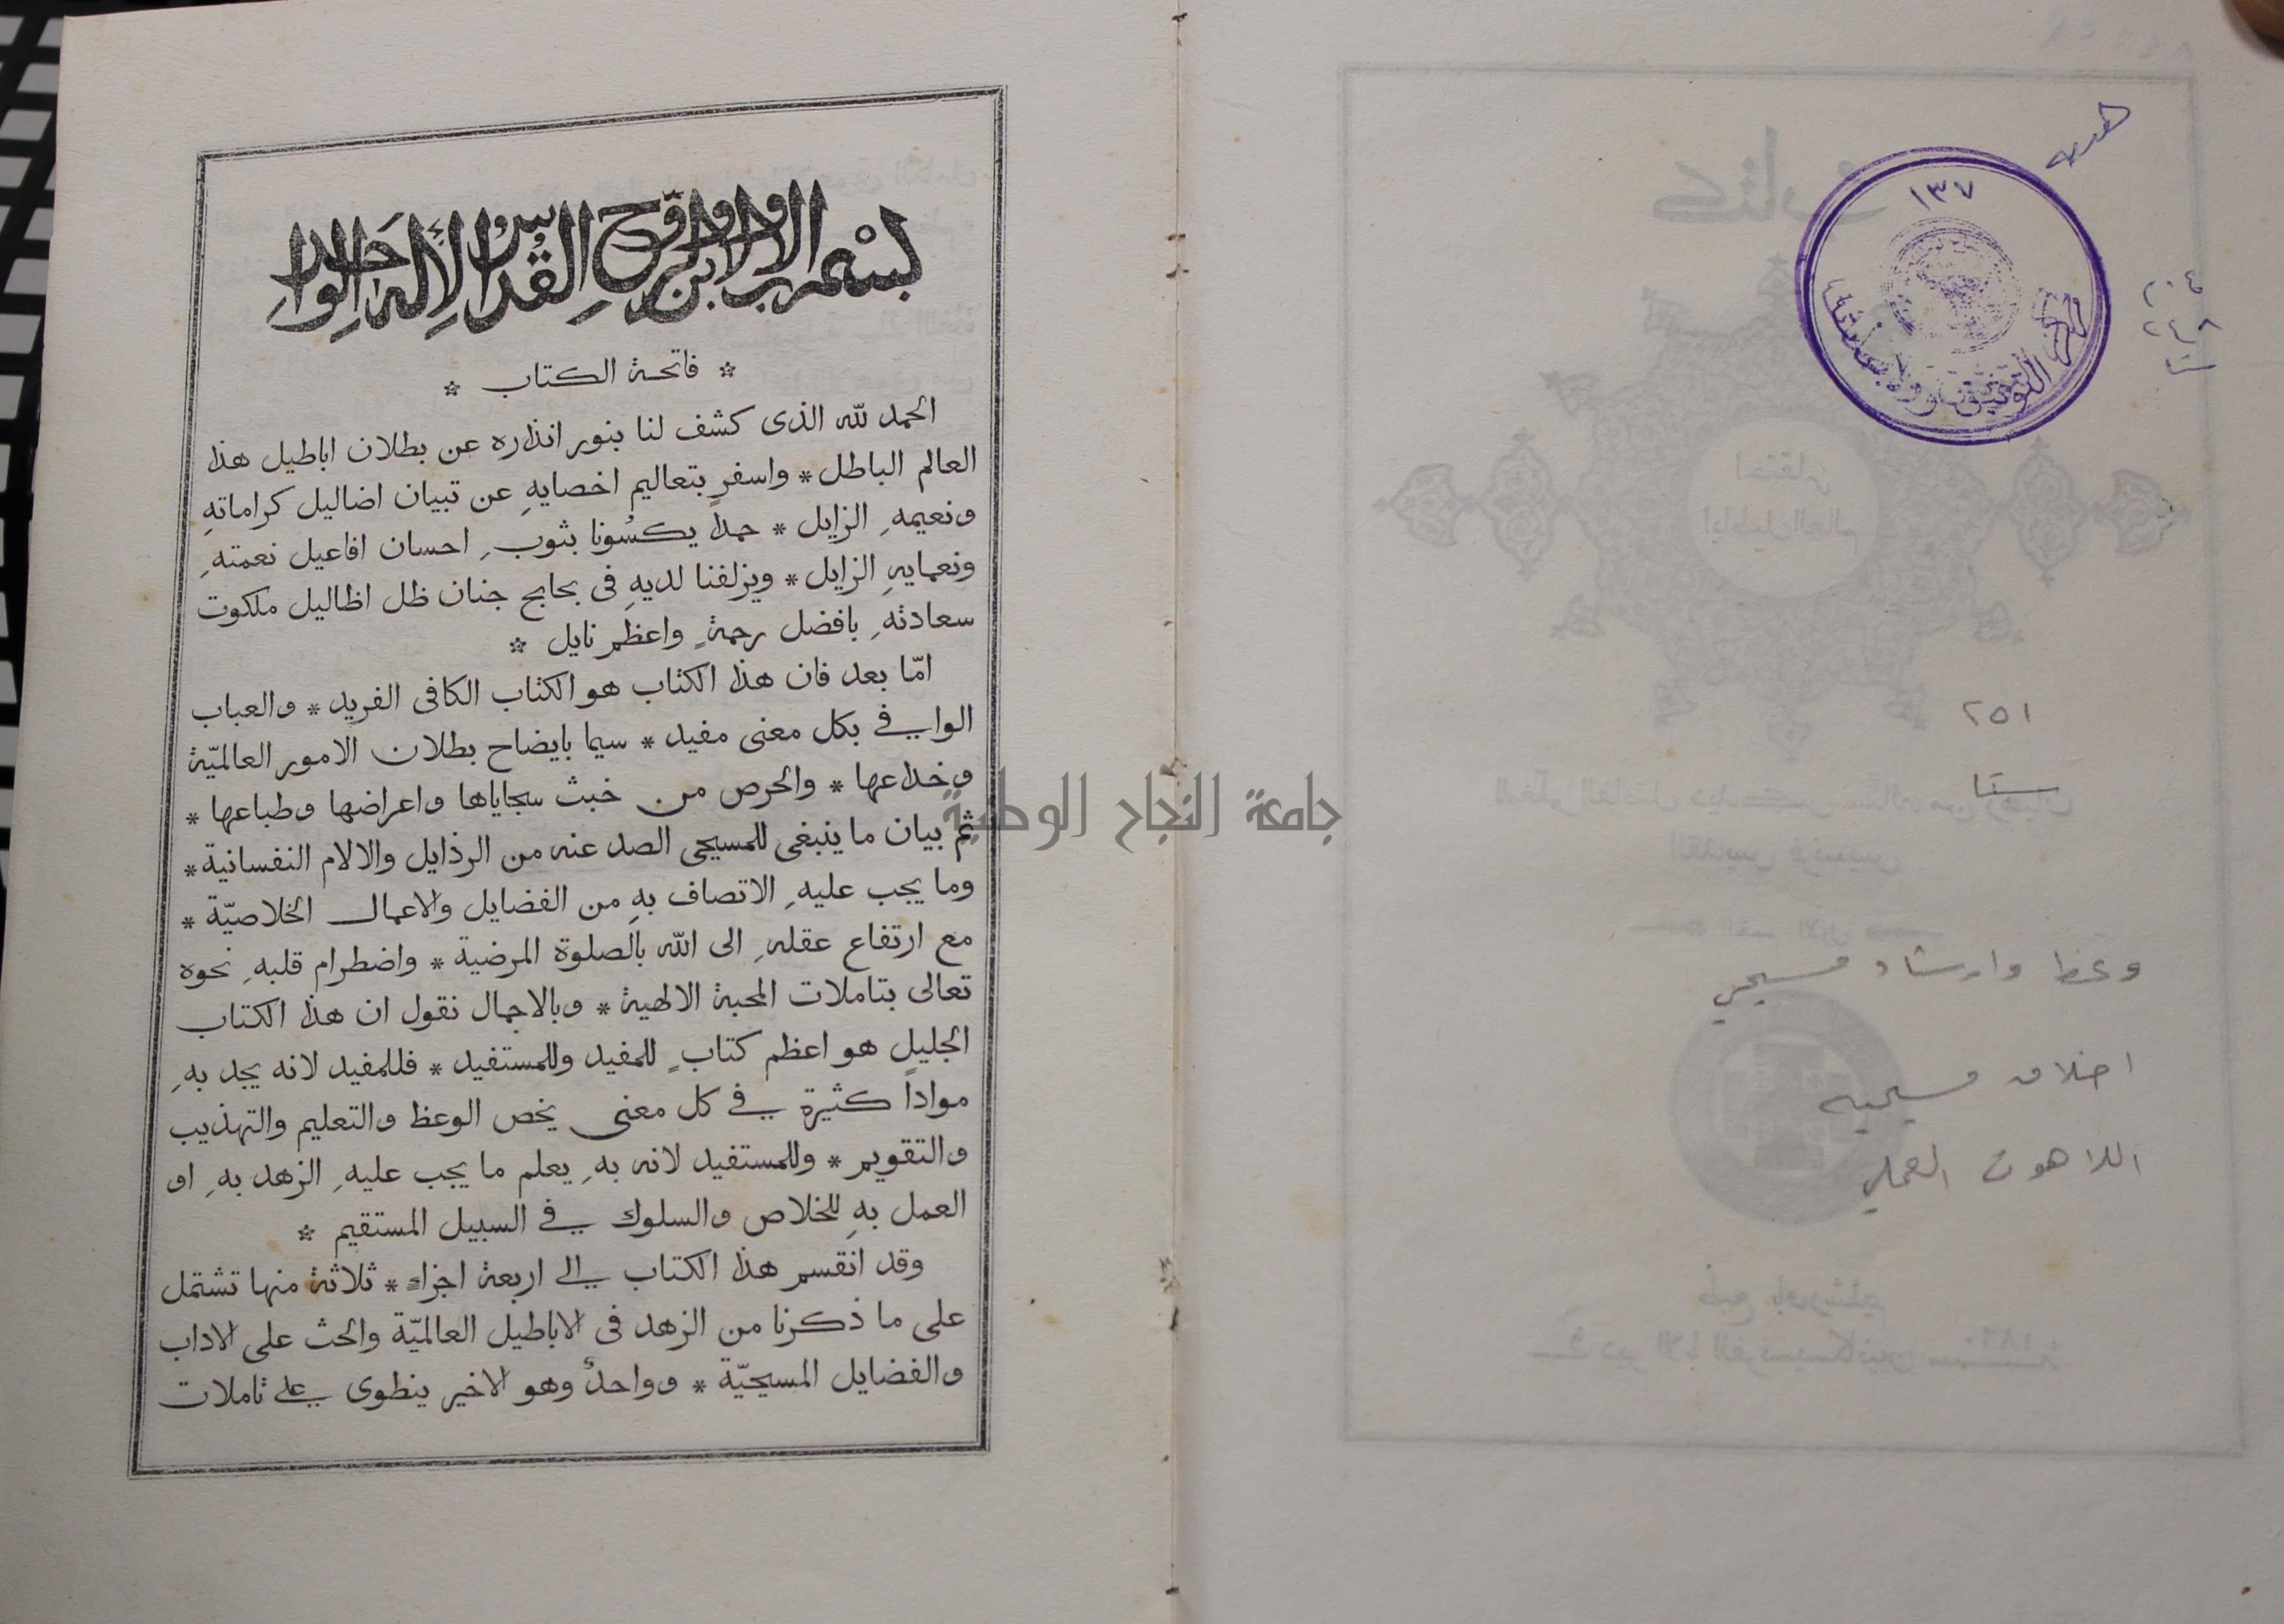 هديه
١٣٧
٢٠٤
٢٤٨
٢٥١
وعظ وارشاد مسيحي
اخلاق مسيحيه
اللاهوت العملي
جامعة النجاح الوطنية
بسم الاب والابن والروح القدس الأله الواحد
☆ فاتحة الكتاب ☆
الحمد للّه الذى كشف لنا بنور انذاره عن بطلان اباطيل هذا
العالم الباطل * واسفر بتعاليم اخصايهِ عن تبيان اضاليل كراماتهِ
ونعيمهِ الزايل * حمداً يكسُونا بثوبِ احسان افاعيل نعمتهِ
ونعمايهِ الزايل * ويزلفنا لديهِ فى بحابح جنان ظل اظاليل ملكوت
سعادتهِ بافضل رحمةٍ واعظم نايل ☆
امّا بعد فان هذا الكتاب هو الكتاب الكافى الفريد * والعباب
الوافي بكل معنى مفيد * سيما بايضاح بطلان الامور العالميّة
وخداعها * والحرص من خبث سجاياها واعراضها وطباعها *
ثم بيان ما ينبغى للمسيحى الصد عنه من الرذايل والالام النفسانية *
وما يجب عليهِ الاتصاف بهِ من الفضايل والاعمال الخلاصيّة *
مع ارتفاع عقلهِ الى اللّه بالصلوة المرضية * واضطرام قلبهِ نحوه
تعالى بتاملات المحبة الالهية * وبالاجمال نقول ان هذا الكتاب
الجليل هو اعظم كتابٍ للمفيد وللمستفيد * فللمفيد لانه يجد بهِ
مواداً كثيرة في كل معنى يخص الوعظ والتعليم والتهذيب
والتقويم * وللمستفيد لانه بهِ يعلم ما يجب عليهِ الزهد بهِ او
العمل بهِ للخلاص والسلوك في السبيل المستقيم ☆
وقد انقسم هذا الكتاب الي اربعة اجزاء * ثلاثة منها تشتمل
على ما ذكرنا من الزهد فى الاباطيل العالميّة والحث على الاداب
والفضايل المسيحيّة * وواحدٌ وهو الاخير ينطوى علي تاملات